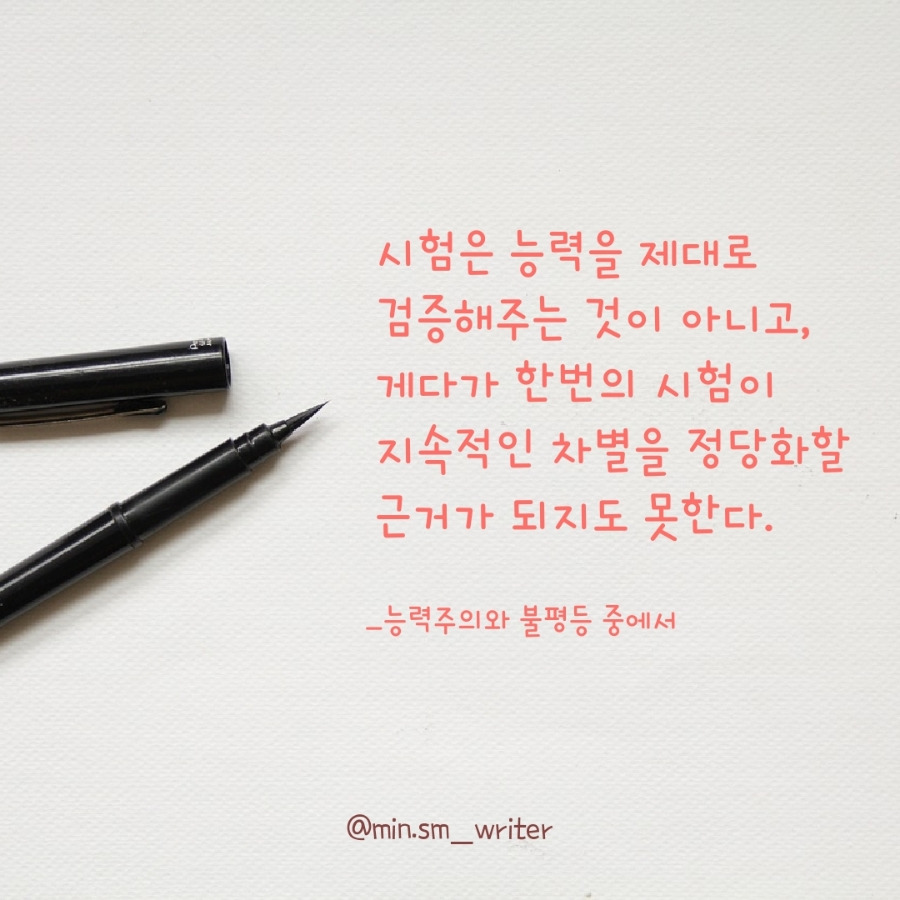 시험은 능력을 제대로
검증해주는 것이 아니고,
게다가 한번의 시험이
지속적인 차별을 정당화할
근거가 되지도 못한다.
_능력주의와 불평등 중에서
@min.sm_writer